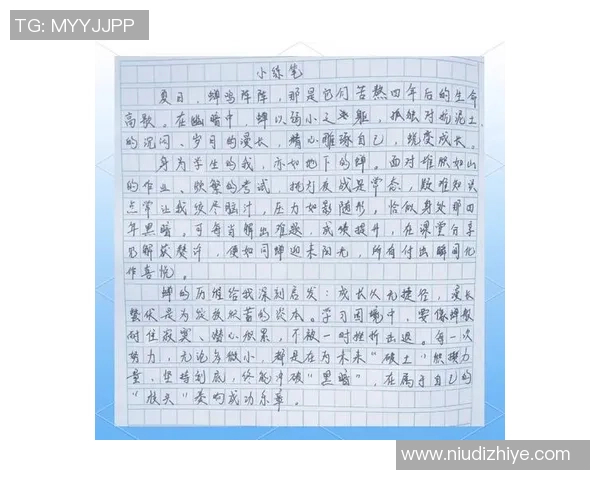 TG: MYYJJPP
小练笔
夏日，蝉鸣阵阵，那是它们苦熬四年后的生命
高歌。在幽暗中，蝉以弱小之躯，孤独对抗泥土
的沉闷、岁月的漫长，精心雕琢自己，蜕变成长。
身为学生的我，亦如地下的蝉。面对堆积如山
的作业、频繁的考试，挑灯夜战是常态，疑难知识
点常让我绞尽脑汁，压力如影随形，恰似身处那四
年黑暗。可每当解出难题，成绩提升，在课堂分享
见解获赞许，便如同蝉迎来阳光，所有付出瞬间化
作喜悦。
蝉的历程给我深刻启发：成长从无捷径，漫长
蛰伏是为发跃积蓄的资本。学习困境中，要像蝉般
耐住寂寞、潜心积累，不被一时挫折击退。每一次
努力，无论多微小，都是在为未来“破土”积攒力
量，坚持到底，终能冲破“黑暗”，在属于自己的
“枝头”奏响成功乐章。
www.niudizhiye.com